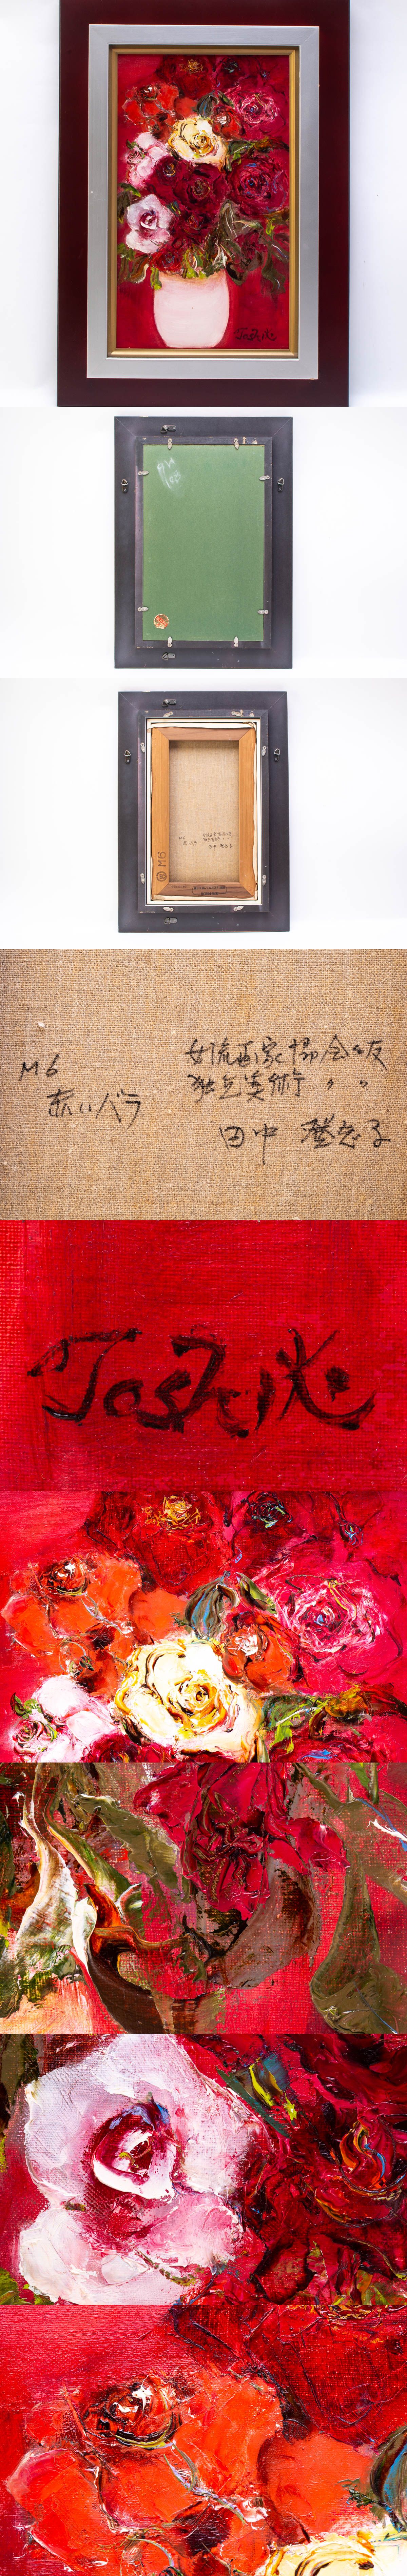 Toshiko
M6
M6
赤いバラ
女流画家協会会友
独立美術 〃 〃
田中 登志子
Toshiko